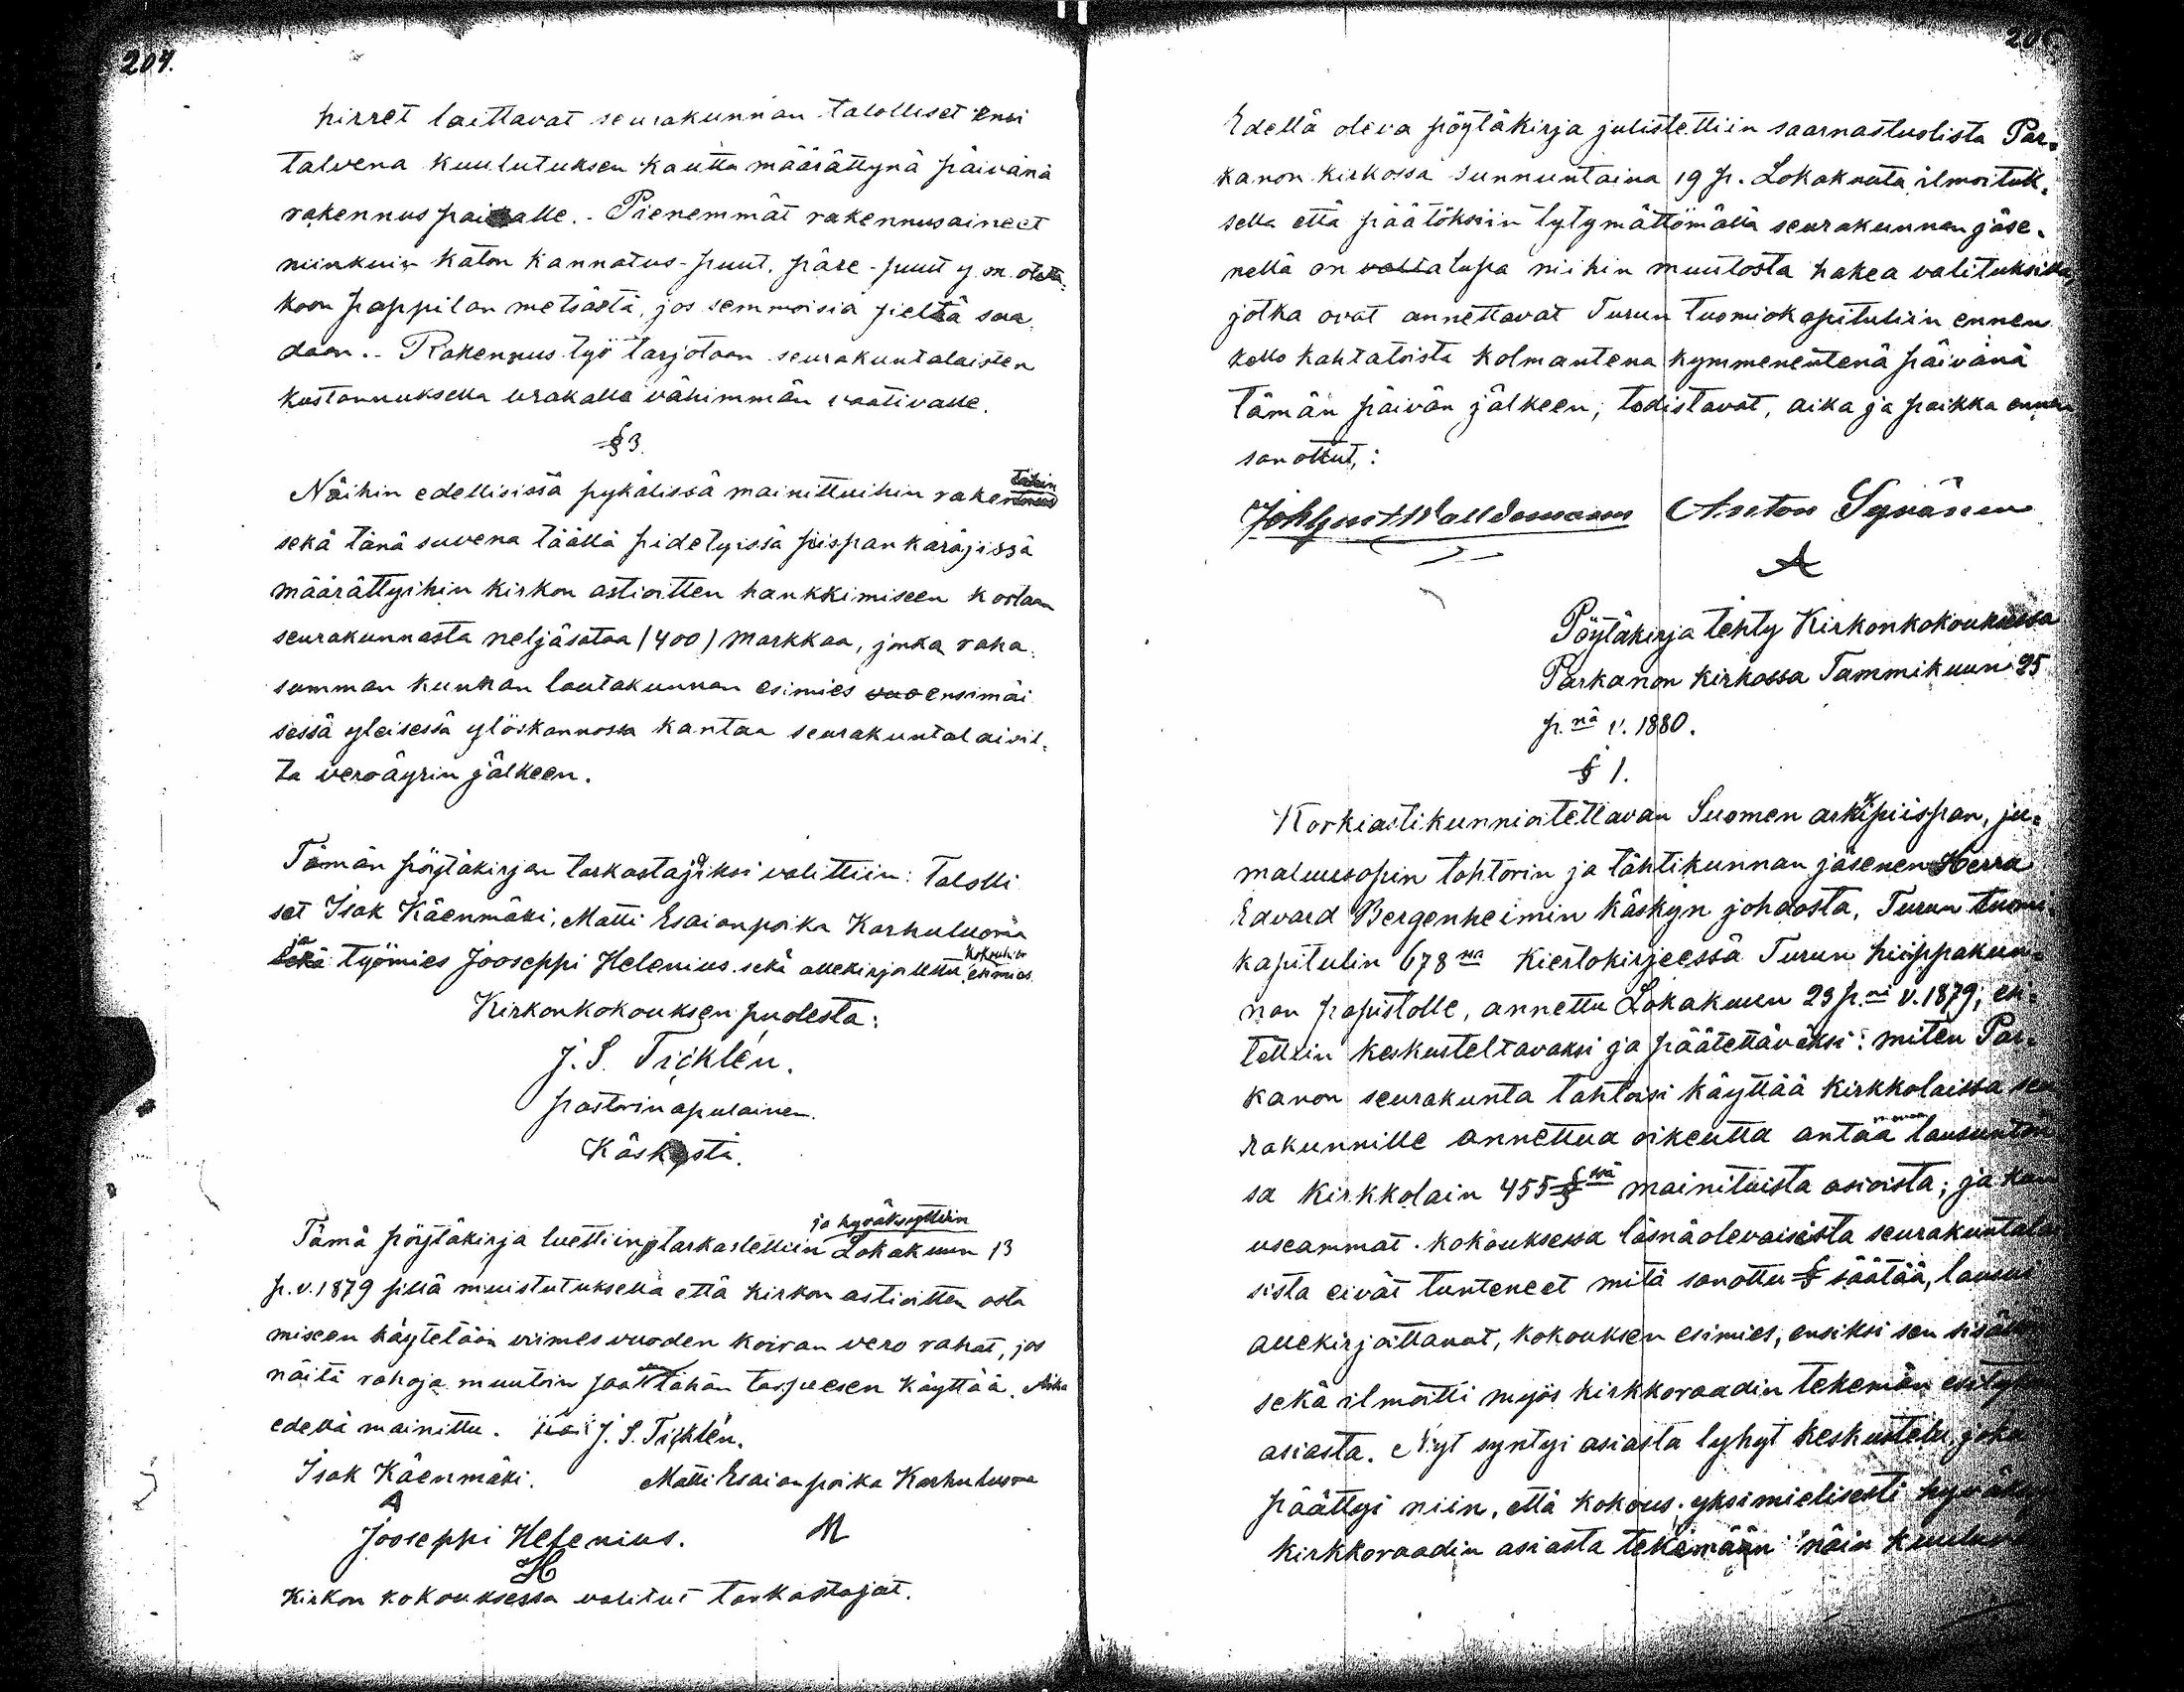 204.
hirret laittavat seurakunnan talolliset ensi
talvena kuulutuksen kautta määrättynä päivänä
rakennus paikalle. - Pienemmät rakennusaineet
niinkuin katon kannatus-puut, päre-puut y.m. oteta-
koon pappilan metsästä, jos semmoisia sieltä saa-
daan. - Rakennus työ tarjotaan seurakuntalaisten
kustannuksella urakalla vähimmän vaativalle.
§ 3.
Näihin edellisissä pykälissä mainittuihin raken
sekä tänä suvena täällä pidetyissä piispan käräjissä
määrättyihin kirkon astioitten hankkimiseen kootaan
seurakunnasta neljäsataa (400) Markkaa, jonka raha-
summan kunnan lautakunnan esimies ensimäi
sessä yleisessä ylöskannossa kantaa seurakuntalaisil-
ta veroäyrin jälkeen.
Tämän pöytäkirjan tarkastajiksi valittiin: Talolli
set Isak Käenmäki, Matti Esaianpoika Karhuluoma
ja
sekä työmies Jooseppi Helenius sekä allekirjoittanu kokouksen esimies.
Kirkonkokouksen puolesta:
J. S. Tricklén.
pastorinapulainen.
Käskystä.
ja hyväksyttiin
Tämä pöytäkirja luettiin, tarkastettiin Lokakuun 13
p. v. 1879 sillä muistutuksella että kirkon astioitten osta
miseen käytetään viimes vuoden koiran vero rahat, jos
näitä rahoja muutoin saa tähän tarpeesen käyttää. Aika
edellä mainittu. J. S. Tricklén.
Isak Käenmäki. Matti Esaianpoika Karhuluoma
A
Jooseppi Helenius. M
H
Kirkon kokouksessa valitut tarkastajat.
Edellä oleva pöytäkirja julistettiin saarnastuolista Par-
kanon kirkossa Sunnuntaina 19 p. Lokakuuta ilmoituk-
sella että päätöksiin tytymättömällä seurakunnan jäse-
nellä on valta lupa niihin muutosta hakea valituksilla,
jotka ovat annettavat Turun Tuomiokapituliin ennen
kello kahtatoista kolmantena kymmenentenä päivänä
tämän päivän jälkeen, todistavat, aika ja paikka ennen
sanottut:
Joh Gust Walldemann Anton Syvänen
A
Pöytäkirja tehty Kirkonkokouksessa
Parkanon kirkossa Tammikuun 25
p.nä v. 1880.
§ 1.
Korkiastikunnioitettavan Suomen arkkipiispan, ju-
maluusopin tohtorin ja tähtikunnan jäsenen Herra
Edvard Bergenheimin käskyn johdosta, Turun tuomi-
kapitulin 678 ssa Kiertokirjeessä Turun hiippakun-
nan papistolle, annettu Lokakuun 23 p.nä v. 1879, esi-
tettiin keskusteltavaksi ja päätettäväksi: miten Par-
kanon seurakunta tahtoisi käyttää kirkkolaissa seu
rakunnille annettua oikeutta antaa lausunton
sa Kirkkolain 455 § ssä mainituista asioista; ja kun
useammat kokouksessa läsnäolevaisista seurakuntalai
sista eivät tunteneet mitä sanottu § säätää, lausui
allekirjoittanut, kokouksen esimies, ensiksi sen sisällön
sekä ilmoitti myös kirkkoraadin tekemän esityksen
asiasta. Nyt syntyi asiasta lyhyt keskustelu, joka
päättyi niin, että kokous yksimielisesti hyväksyi
kirkkoraadin asiasta tekemään näin kuuluvan